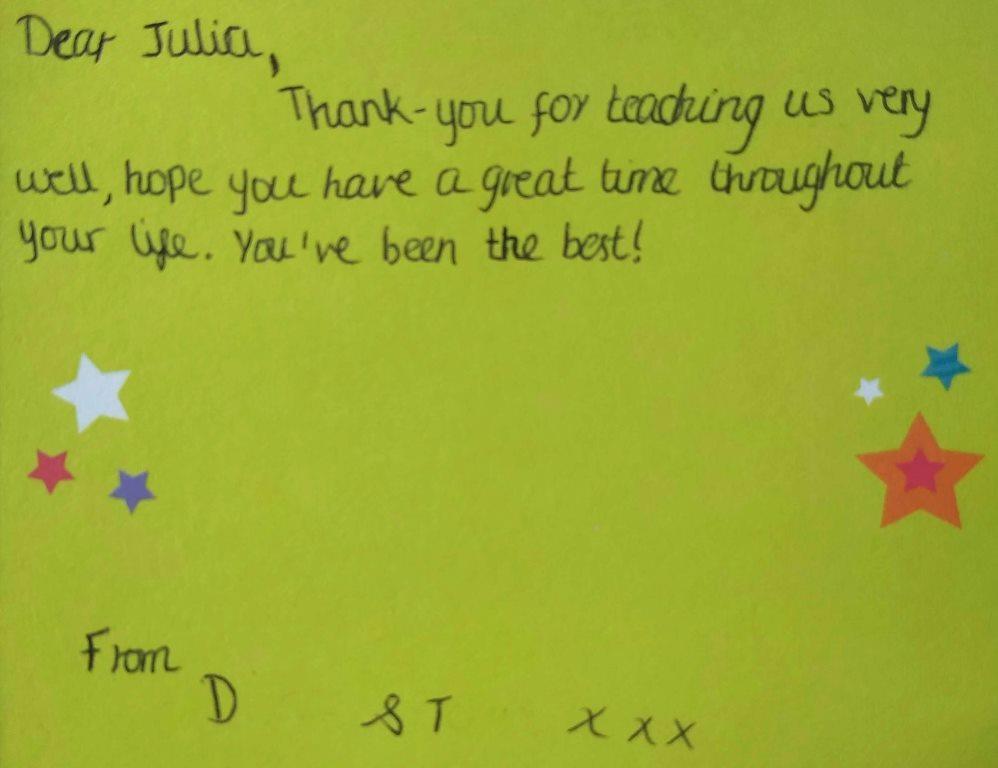 Dear Julia,
Thank-you for teaching us very
well, hope you have a great time throughout
your life. You've been the best!
From
D & T x x x